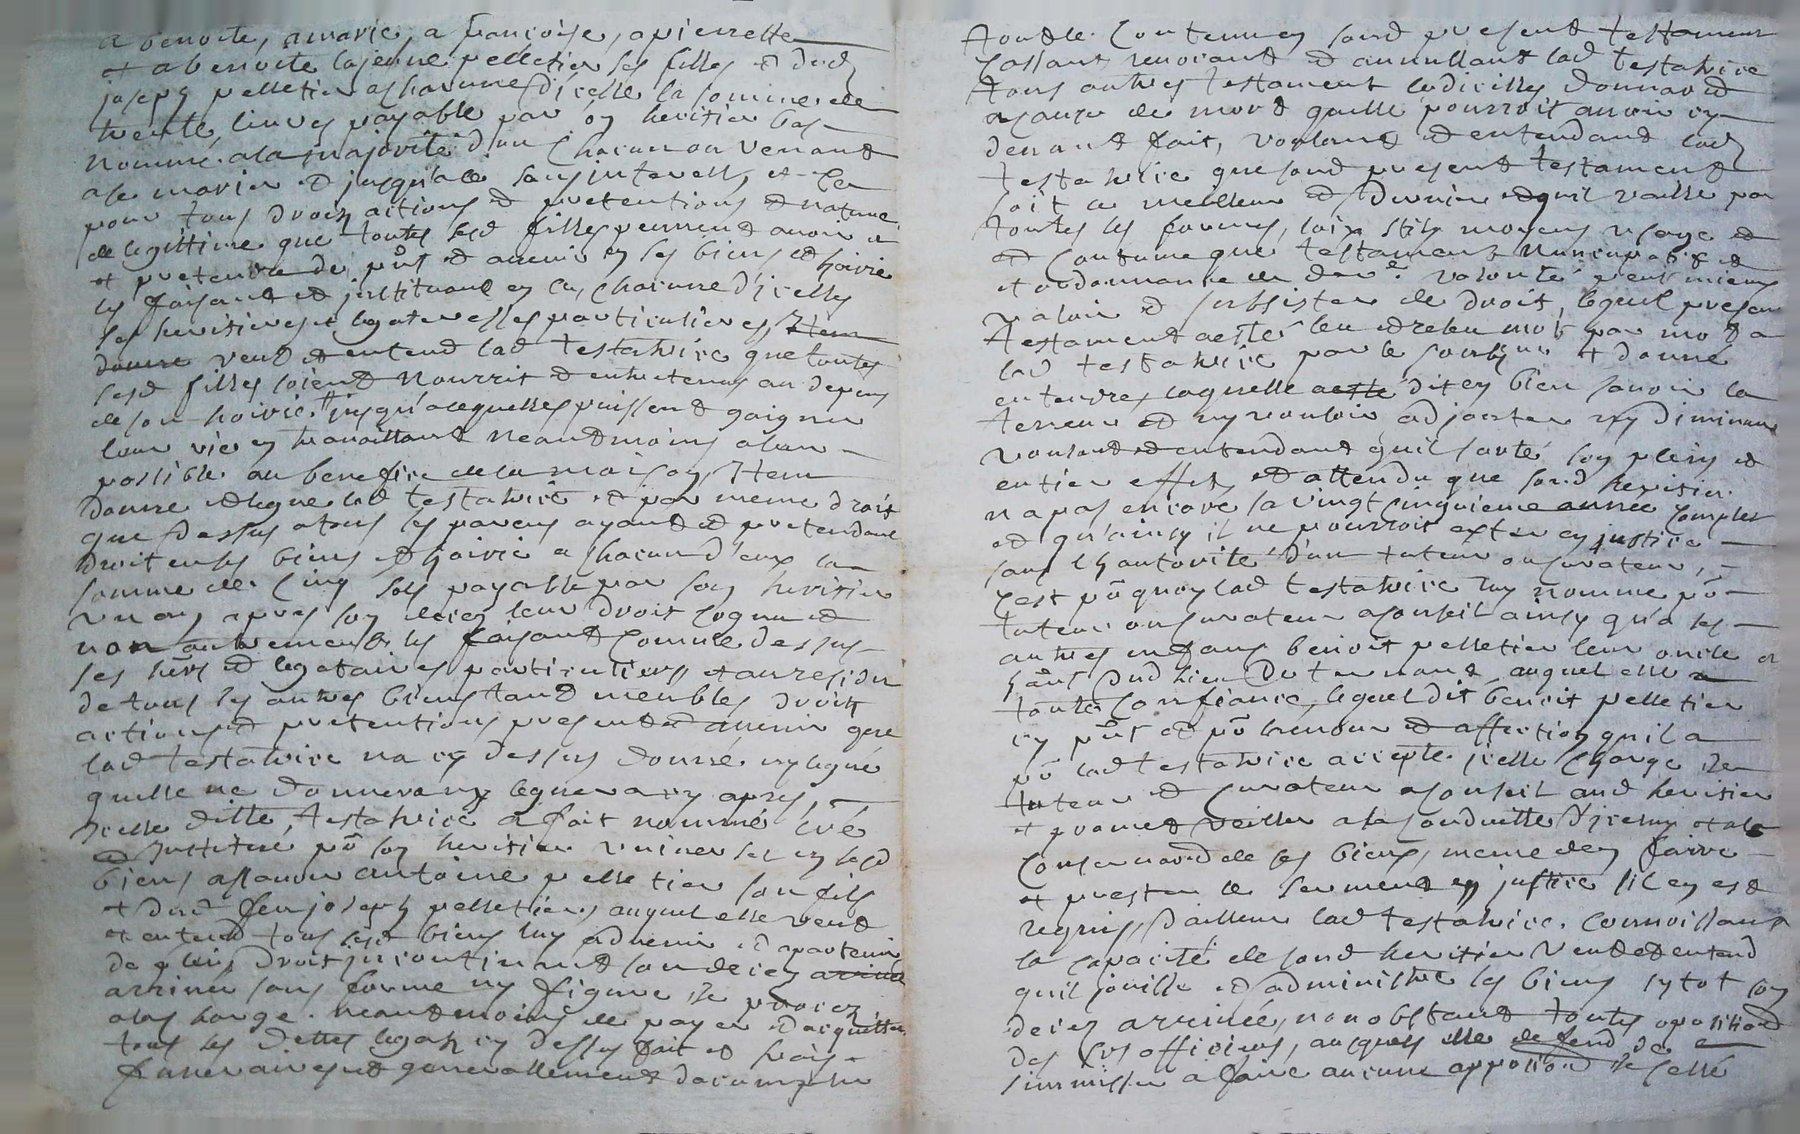 a benoite, a marie, a francoise, a pierrette
et a benoite la jeune pelletier ses filles et dud
joseph pelletier a chacune d'icelle la somme de
trente livres payable par son heritier bas
nommé a la majorité d'un chacun ou venant
a se marier et jusqu'alé sans interest, et ce
pour tous droits actions et pretentions et nature
de legittime que toutes sesd filles peuvent avoir
et pretendre de pnt et avenir en ses biens et hoirie
les faisant et instituant en ce, chacune d'icelles
ses heritieres et legateresses particulieres Item
donne veut et entend lad testatrice que toutes
sesd filles soient nourrit et entretenus au depens
de son hoirie jusqu'a ce quelles puissent gaigner
leur vie en travaillant neantmoins a leur
possible au benefice de la maison, Item
donne et legue lad testatrice et par meme droit
que dessus a tous ses parens ayant et pretendant
droit en ses biens et hoirie a chacun d'eux la
somme de cinq sols payable par son heritier
un an apres son decez leur droit cognu et
non autrement les faisant comme dessus
ses hers et legataires particuliers et au residu
de tous ses autres biens tant meubles droits
actions et pretentions present et avenir que
lad testatrice na cy dessus donné ny legué
quelle ne donnera ny leguera cy apres,
icelle ditte testatrice a fait nommé créé
et institue pō son heritier universel en sesd
biens assavoir antoine pelletier son fils
et dud feu joseph pelletier, auquel elle veut
et entend tous sesd biens luy advenir et apartenir
de plein droit incontinent son decez arrivé
arrivé sans forme ny figure de procez
a la charge neantmoins de payer et acquitter
tous les dettes legats cy dessus fait et frais
funeraires et generallement d'accomplir
tout le contenu en sond present testament
cassant revocant et annullant lad testatrice
tous autres testament codicilles donnaōn
a cause de mort quelle pourroit avoir cy
devant fait, voulant et entendant lad
testatrice que sond present testament
soit ce meilleur et dernier et quil vaille par
toutes les formes, loix stils moyens usage et
et coutume que testament nuncupatif et
et ordonnance de dere volonté peut mieux
valoir et subsister de droit, lequel present
testament a esté leu et releu mot par mot a
lad testatrice par le soubsné et donné
entendre, laquelle a esté dit en bien savoir la
teneur et ny vouloir adjouter ny diminuer
voulant et entendant qu'il sorte son plein et
entier effet, et attendu que sond heritier
n'a pas encore sa vingt cinquieme année complet
et qu'ainsy il ne pourroit exter en justice
sans l'hautorité d'un tuteur ou curateur,
c'est pō quoy lad testatrice luy nomme pō
tuteur ou curateur a conseil ainsy qu'a ses
autres enfans benoit pelletier leur oncle
hānt dud lieu auquel elle a
toute confiance, lequel dit benoit pelletier
cy pnt et pō et affection qu'il a
pō lad testatrice accepte icelle charge de
tuteur et curateur a conseil aud heritier
et promet veiller a la conduitte d'iceluy et a la
conservaōn de ses biens, meme d'en faire
et prester le serment en justice s'il en est
requis, d'ailleur lad testatrice connoissant
la capacité de sond heritier veut et entend
qu'il jouisse et administre ses biens sytot son
decez arrivée, nonobstant toutes oposition
des srs officiers, auxquels elle deffend de
s'immisser a faire aucune apposition de scellé